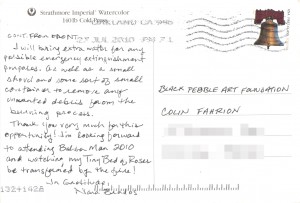 Strathmore Imperial® Watercolor
140 lb Cold Press
OAKLAND CA 946
27 JUL 2010 PM 7 1
CONT. FROM FRONT
I will bring extra water for any
possible emergency extinguishment
purposes. As well as a small
shovel and some sort of small
container to remove any
unwanted debris from the
burning process.
Thank you very much for this
opportunity! I'm looking forward
to attending Man 2010
and watching my Tiny Bed of Roses
be transformed by the fire!
In Gratitude,
BLACK PEBBLE ART FOUNDATION
COLIN FAHRION